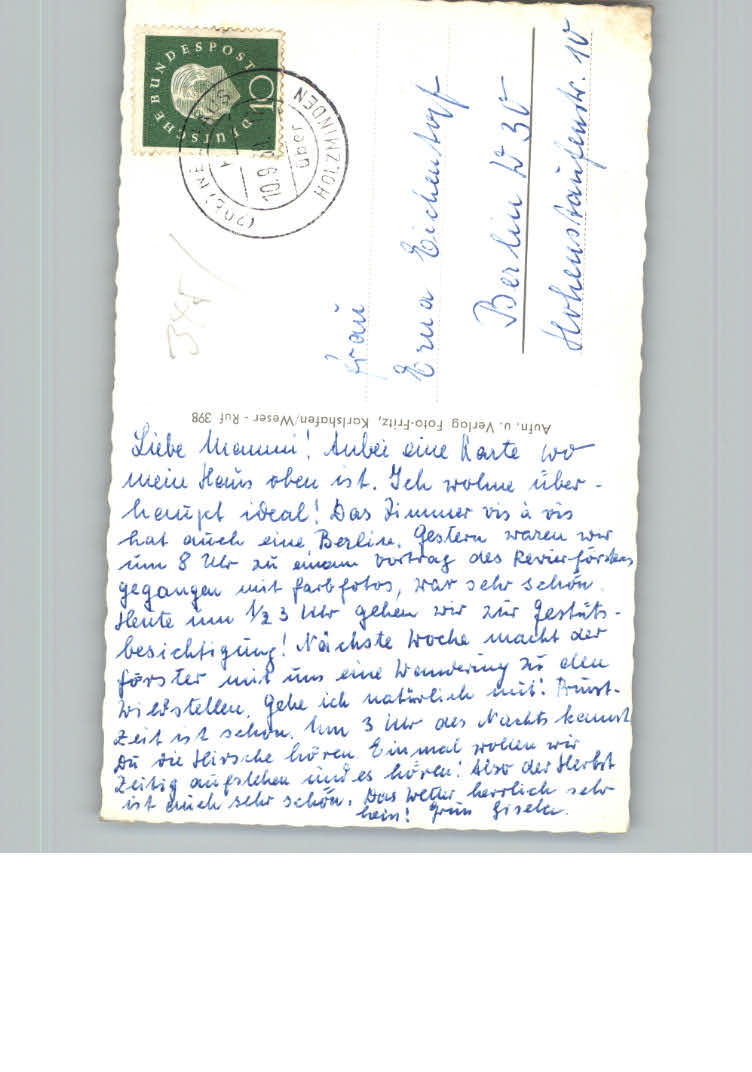 DEUTSCHE BUNDESPOST
10
HOLZMINDEN
über
10.9
(20b) NE
345/
Frau
Erna Eichendorf
Berlin W 30
Hohenstaufenstr. 10
Aufn. u. Verlag Foto-Fritz, Karlshafen/Weser - Ruf 398
Liebe Mammi! Anbei eine Karte wo
mein Haus oben ist. Ich wohne über-
haupt ideal! Das Zimmer vis à vis
hat auch eine Berlin. Gestern waren wir
um 8 Uhr zu einem Vortrag des Revierförsters
gegangen mit Farbfotos, war sehr schön.
Heute um 1/2 3 Uhr gehen wir zur Gestüts-
besichtigung! Nächste Woche macht der
Förster mit uns eine Wanderung zu den
Wildstellen. Gehe ich natürlich mit! Brunst-
zeit ist schon. Um 3 Uhr des Nachts kannst
Du die Hirsche hören. Einmal wollen wir
zeitig aufstehen und es hören! Also der Herbst
ist auch sehr schön. Das Wetter herrlich sehr
heiß! Gisela.